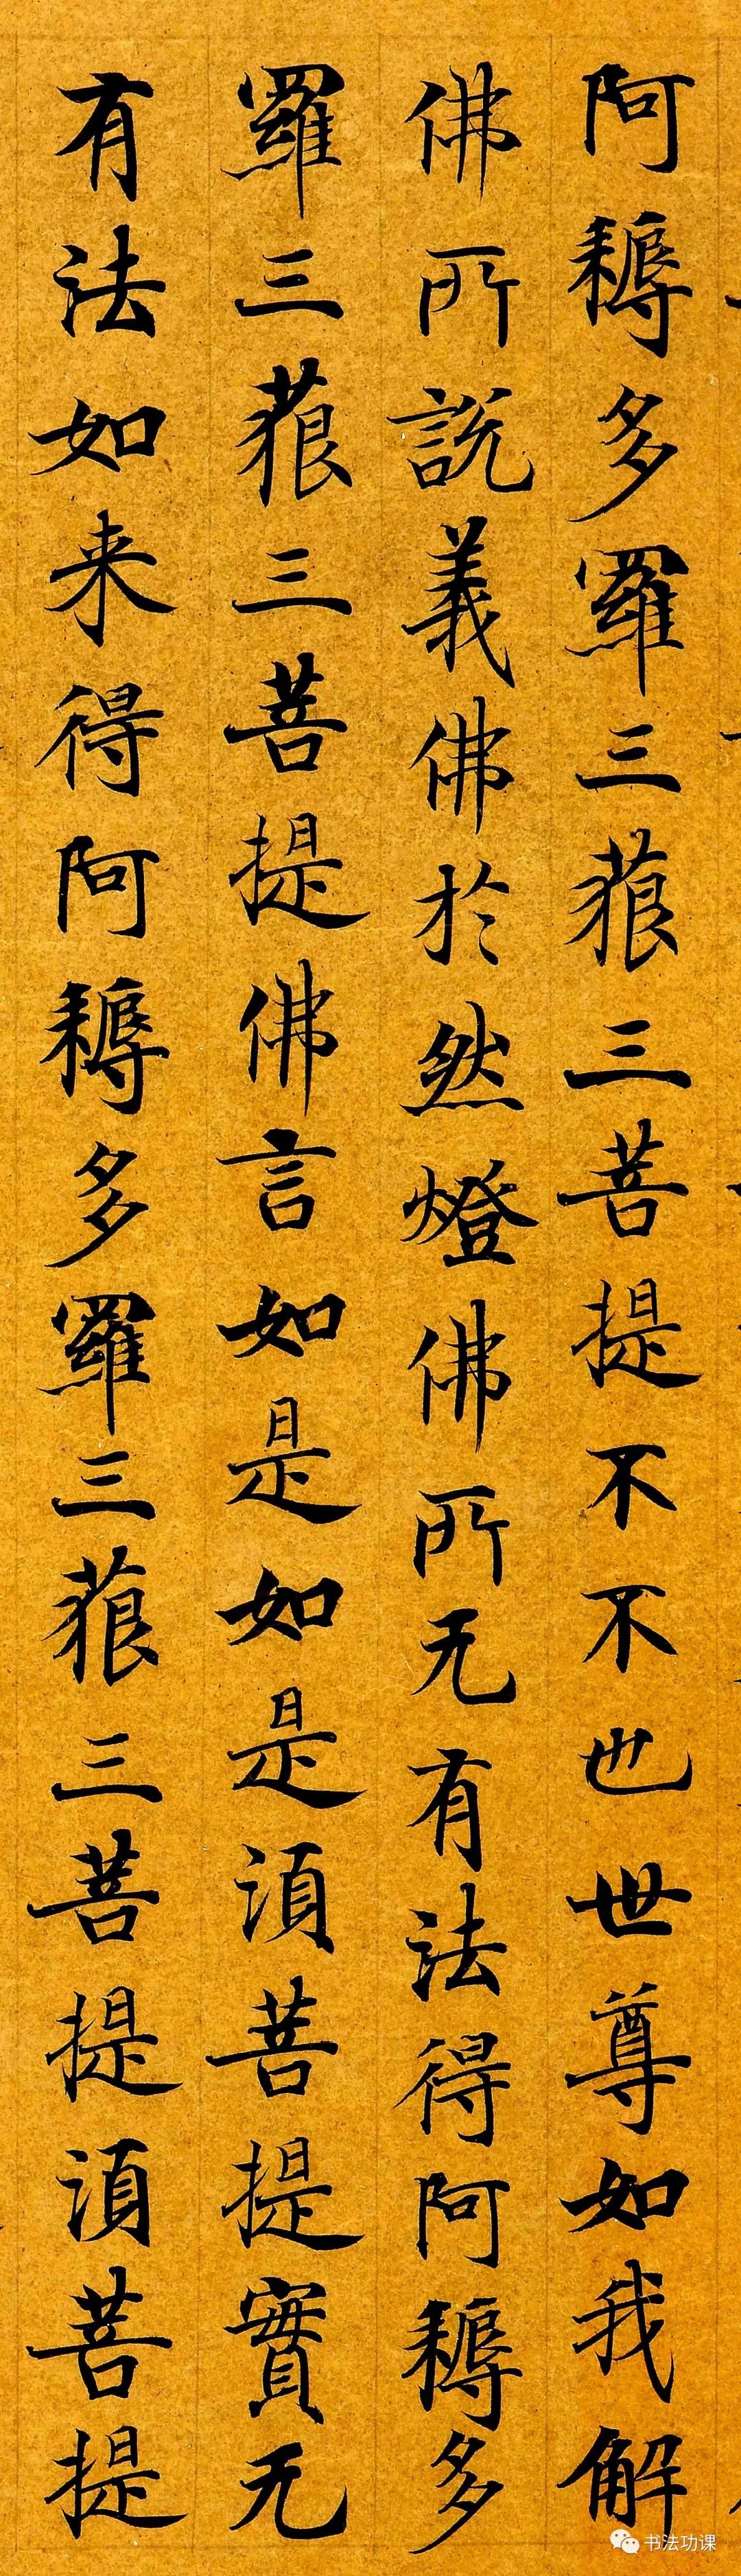 阿耨多羅三藐三菩提不不也世尊如我解
佛所說義佛於然燈佛所无有法得阿耨多
羅三藐三菩提佛言如是如是須菩提實无
有法如来得阿耨多羅三藐三菩提須菩提
书法功课